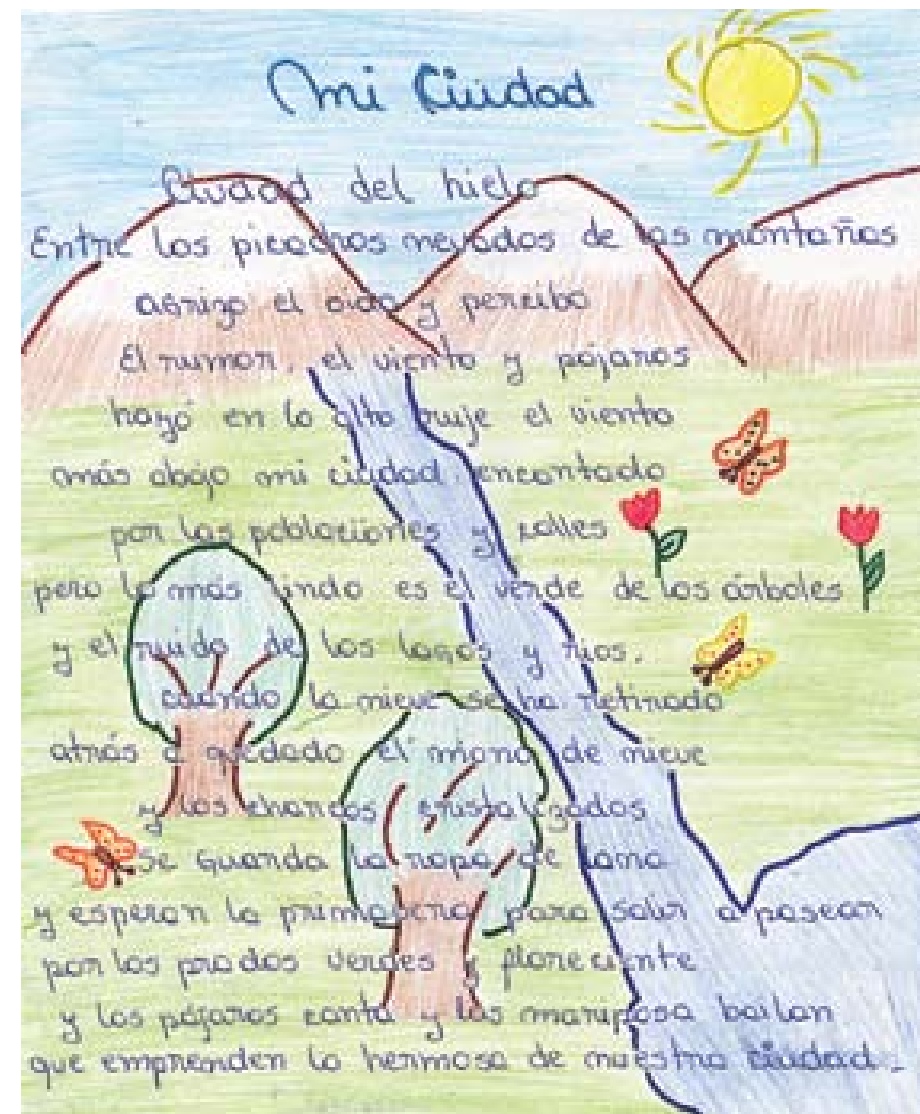 Mi Ciudad
Ciudad del hielo
Entre los picachos nevados de las montañas
el oido y percibo
El rumor, el viento y pájaros
en lo alto ruje el viento
más abajo mi ciudad encantado
por las poblaciones y calles
pero lo más lindo es el verde de los árboles
y el ruido de los lagos y rios,
cuando la nieve se ha retirado
atrás a quedado el mono de nieve
y los charcos cristalizados
se guarda la ropa de lana
y esperan la primabera para salir a pasear
por los prados verdes y floreciente
y los pájaros canta y las mariposa bailan
que emprenden lo hermosa de nuestra ciudad.